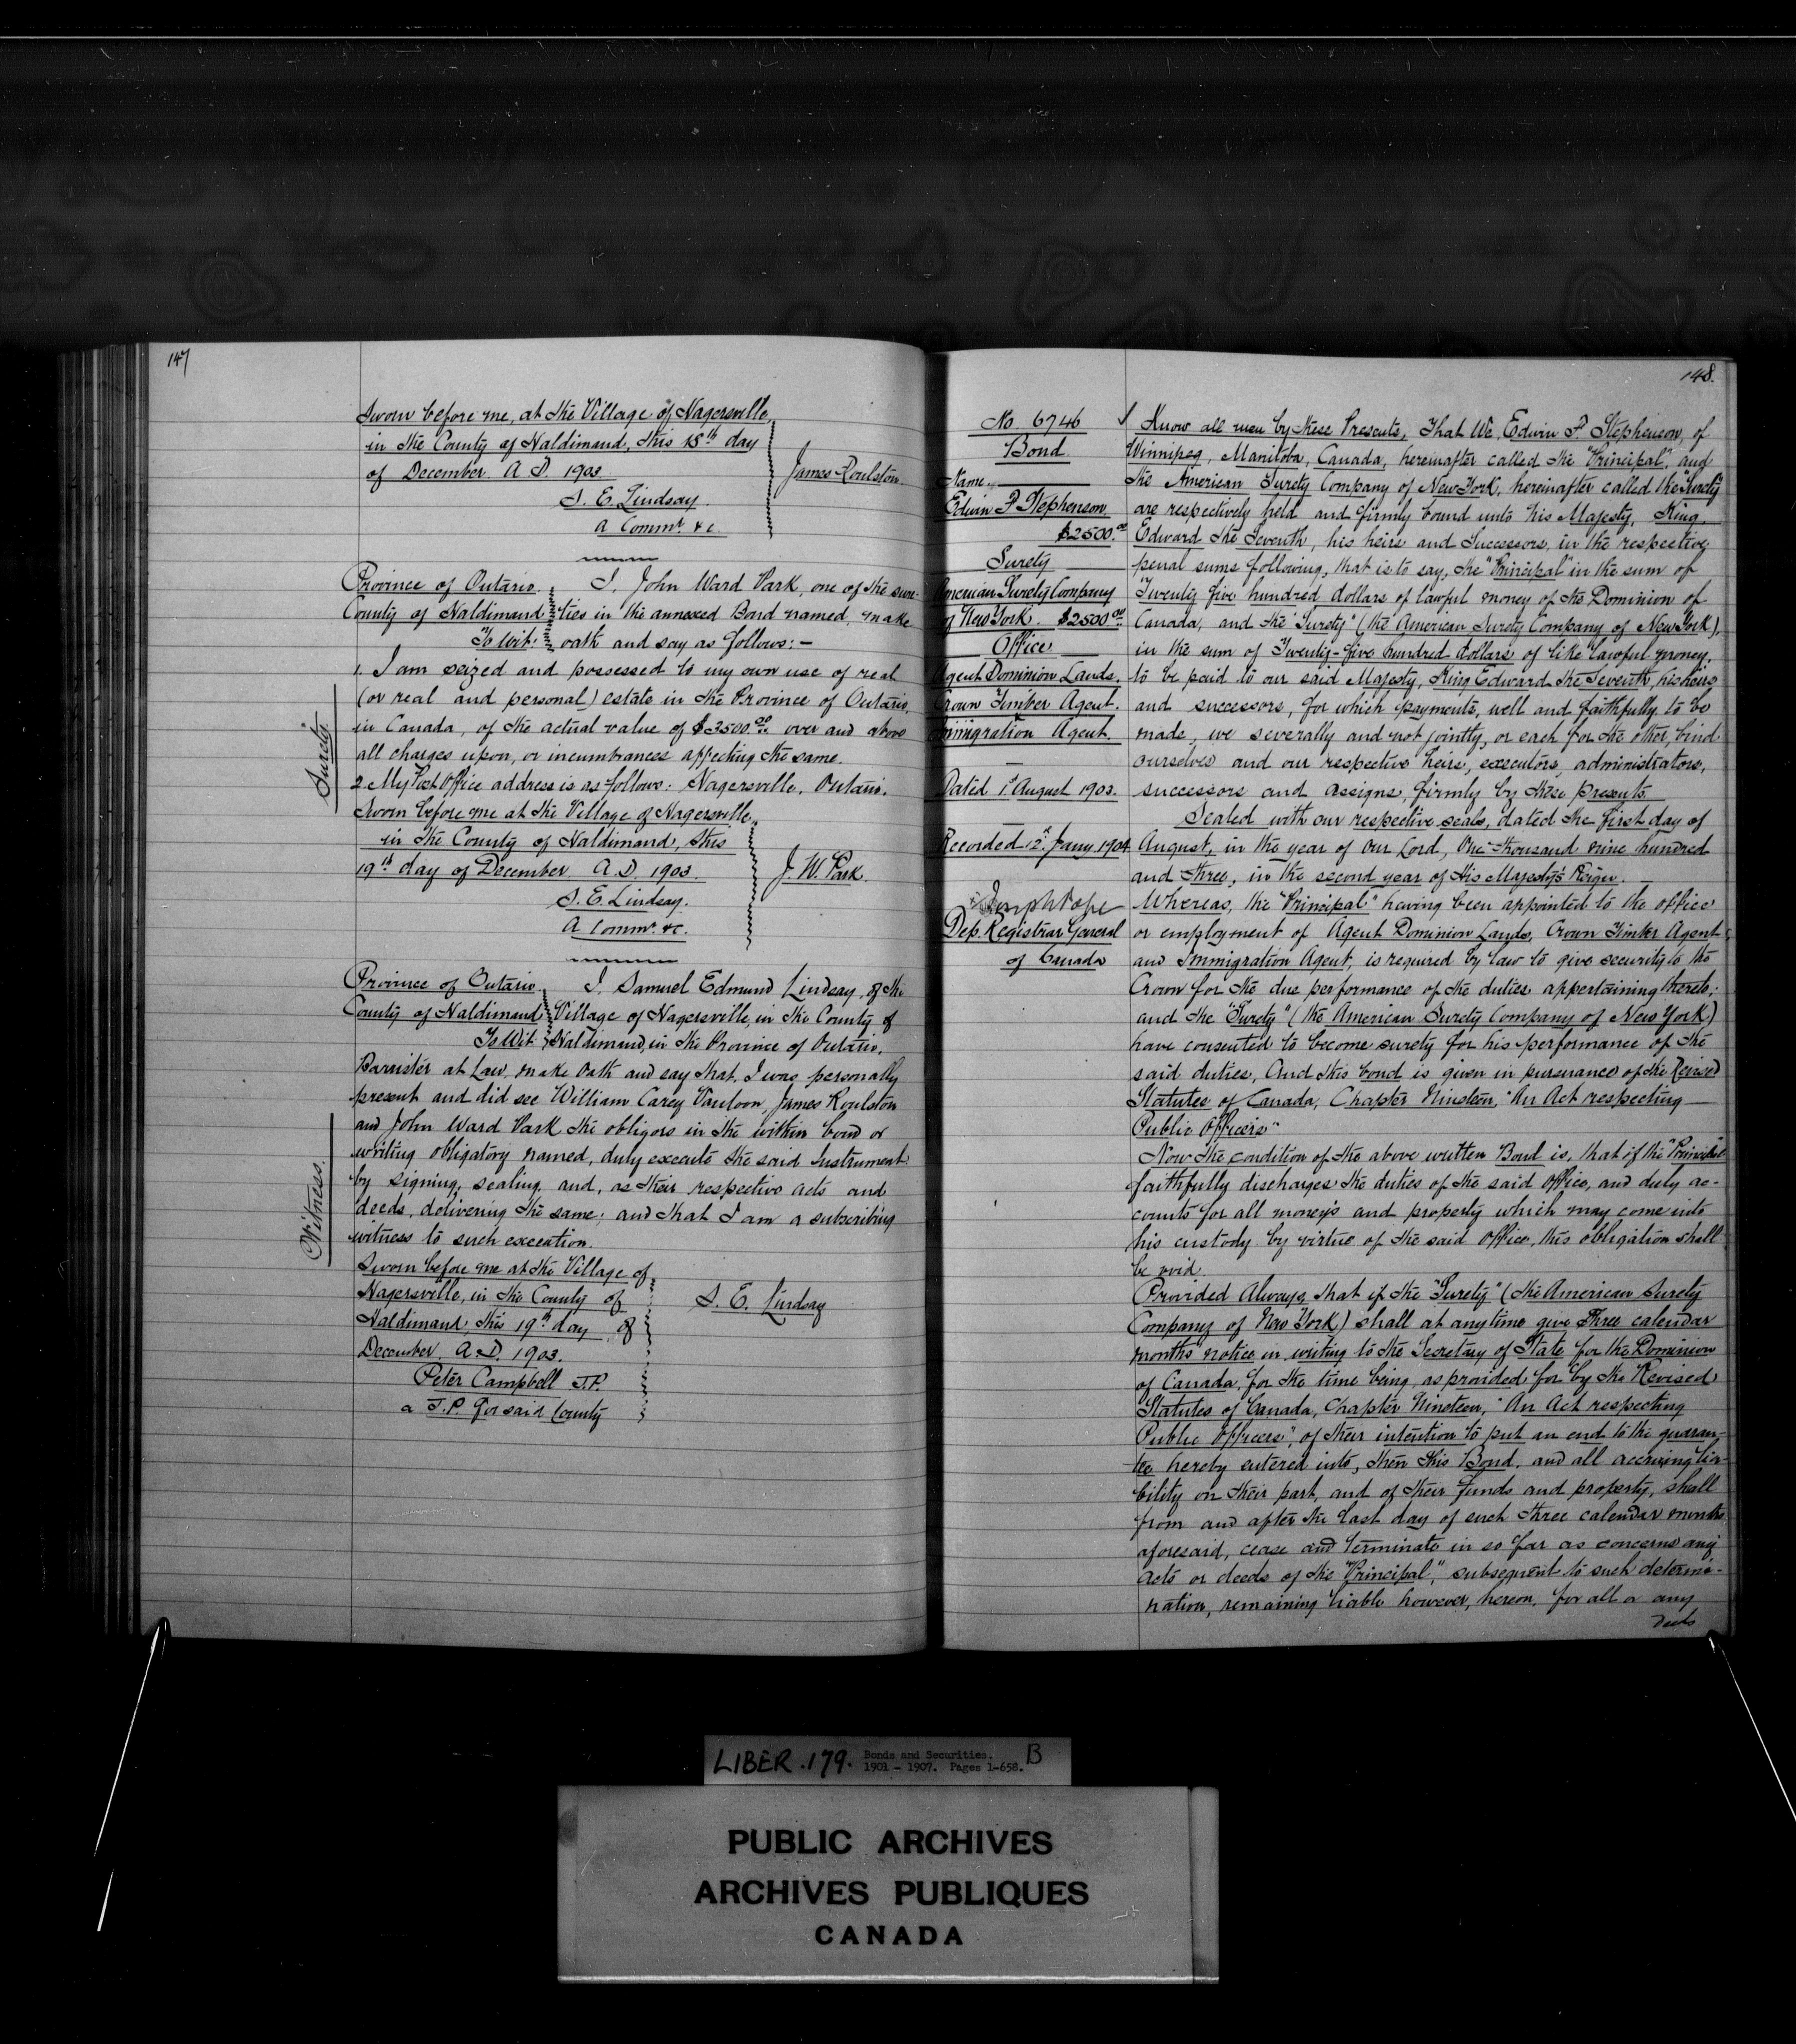 147
Sworn before me, at the Village of Hagersville,
in the County of Haldimand, this 18th day
of December A.D. 1903.
James Roulston
S. E. Lindsay.
a Commr. &c.
Province of Ontario. I, John Ward Park, one of the sure-
County of Haldimand ties in the annexed Bond named, make
To Wit: oath and say as follows:-
1. I am seized and possessed to my own use of real
(or real and personal) estate in the Province of Ontario,
in Canada, of the actual value of $3500.00 over and above
all charges upon, or incumbrances affecting the same.
Surety.
2 My Post Office address is as follows: Hagersville, Ontario.
Sworn before me at the Village of Hagersville,
in the County of Haldimand, this
19th day of December A.D. 1903.
J. W. Park.
S. E. Lindsay.
A Commr. &c.
Province of Ontario. I, Samuel Edmund Lindsay, of the
County of Haldimand Village of Hagersville, in the County of
To Wit: Haldimand, in the Province of Ontario,
Barrister at Law, make oath and say that, I was personally
present and did see William Carey Vanloon, James Roulston
and John Ward Park the obligors in the within bond or
writing obligatory named, duly execute the said Instrument
by signing, sealing, and, as their respective acts and
deeds, delivering the same; and that I am a subscribing
witness to such execution.
Witness.
Sworn before me at the Village of
Hagersville, in the County of
S. E. Lindsay
Haldimand, this 19th day of
December. A.D. 1903.
Peter Campbell J.P.
a J.P. for said County
148.
No. 6746
Bond.
Name.
Edwin F Stephenson
$2500.00
Surety
American Surety Company
of New York. $2500.00
Office
Agent Dominion Lands,
Crown Timber Agent.
Immigration Agent.
Dated 1st August 1903.
Recorded 12th Jany 1904
Joseph Pope
Dep. Registrar General
of Canada
Know all men by these Presents, That We, Edwin F. Stephenson, of
Winnipeg, Manitoba, Canada, hereinafter called the "Principal", and
the American Surety Company of New York, hereinafter called the "Surety"
are respectively held and firmly bound unto his Majesty, King
Edward the Seventh, his heirs and Successors, in the respective
penal sums following, that is to say, the "Principal" in the sum of
Twenty five hundred dollars of lawful money of the Dominion of
Canada, and the "Surety" (the American Surety Company of New York),
in the sum of Twenty-five hundred dollars of like lawful money,
to be paid to our said Majesty, King Edward the Seventh, his heirs
and successors, for which payments, well and faithfully to be
made, we severally and not jointly, or each for the other, bind
ourselves and our respective heirs, executors, administrators,
successors and assigns, firmly by these presents.
Sealed with our respective seals, dated the first day of
August, in the year of Our Lord, One thousand nine hundred
and three, in the second year of His Majesty's Reign.
Whereas, the "Principal" having been appointed to the office
or employment of Agent Dominion Lands, Crown Timber Agent,
and Immigration Agent, is required by law to give security to the
Crown for the due performance of the duties appertaining thereto;
and the "Surety" (the American Surety Company of New York)
have consented to become surety for his performance of the
said duties, And this bond is given in pursuance of the Revised
Statutes of Canada, Chapter Nineteen, "An Act respecting
Public Officers"
Now the condition of the above written Bond is, that if the "Principal"
faithfully discharges the duties of the said office, and duly ac-
counts for all money's and property which may come into
his custody by virtue of the said Office, this obligation shall
be void.
Provided Always, that if the "Surety" (the American Surety
Company of New York) shall at anytime give Three calendar
months' notice in writing to the Secretary of State for the Dominion
of Canada, for the time being, as provided for by the Revised
Statutes of Canada, Chapter Nineteen, "An Act respecting
Public Officers", of their intention to put an end to the guaran-
tee hereby entered into, then this Bond, and all accruing lia-
bility on their part, and of their funds and property, shall
from and after the last day of such three calendar months
aforesaid, cease and terminate in so far as concerns any
acts or deeds of the "Principal", subsequent to such determi-
nation, remaining liable however, hereon, for all or any
deeds
LIBER.179. Bonds and Securities. B
1901 - 1907. Pages 1-658.
PUBLIC ARCHIVES
ARCHIVES PUBLIQUES
CANADA